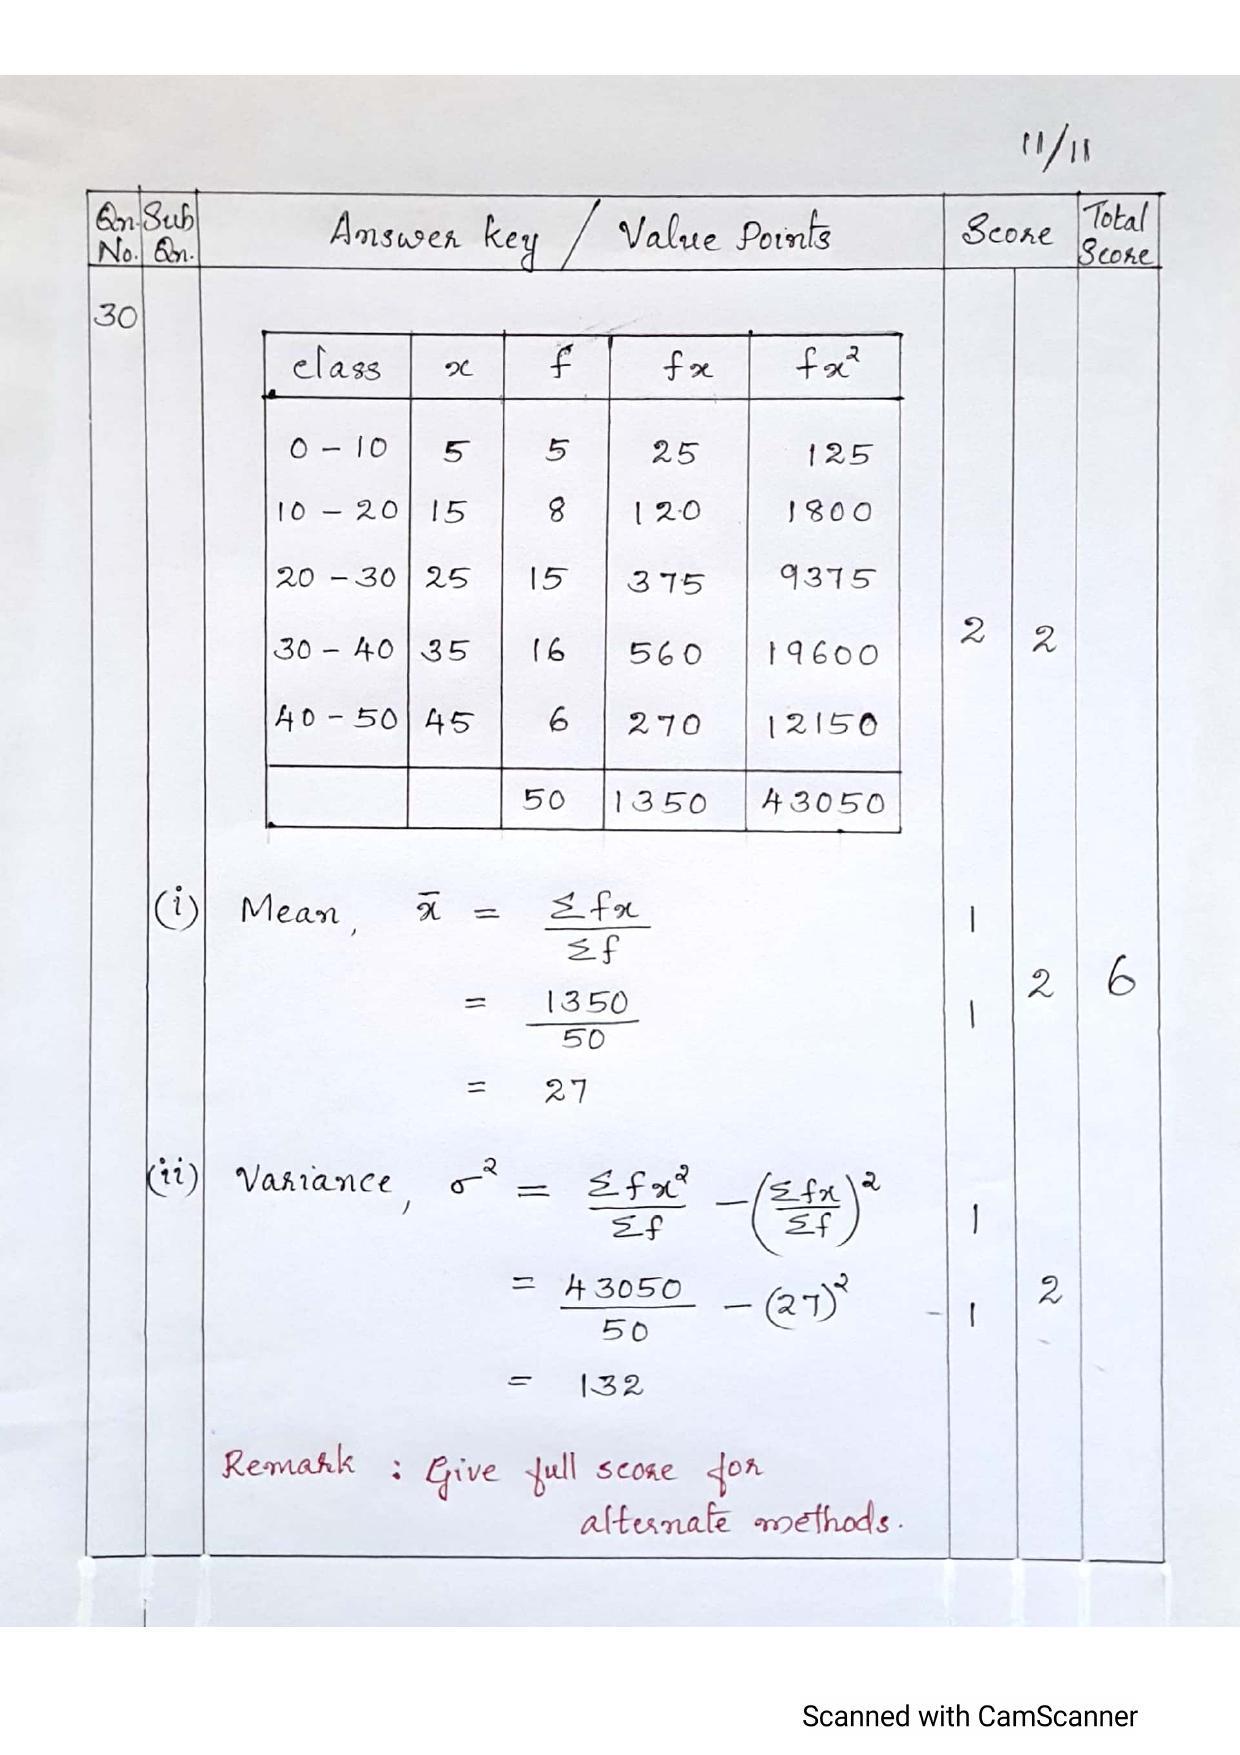 11/11
Qn. No. Sub Qn. Answer key / Value Points Score Total Score
30
class x f fx fx²
0 - 10 5 5 25 125
10 - 20 15 8 120 1800
20 - 30 25 15 375 9375
30 - 40 35 16 560 19600
40 - 50 45 6 270 12150
2 2
50 1350 43050
(i) Mean, x̄ = Σfx / Σf 1
= 1350 / 50 1 2 6
= 27
(ii) Variance, σ² = Σfx² / Σf - (Σfx / Σf)² 1
= 43050 / 50 - (27)² - 1 2
= 132
Remark : Give full score for
alternate methods.
Scanned with CamScanner